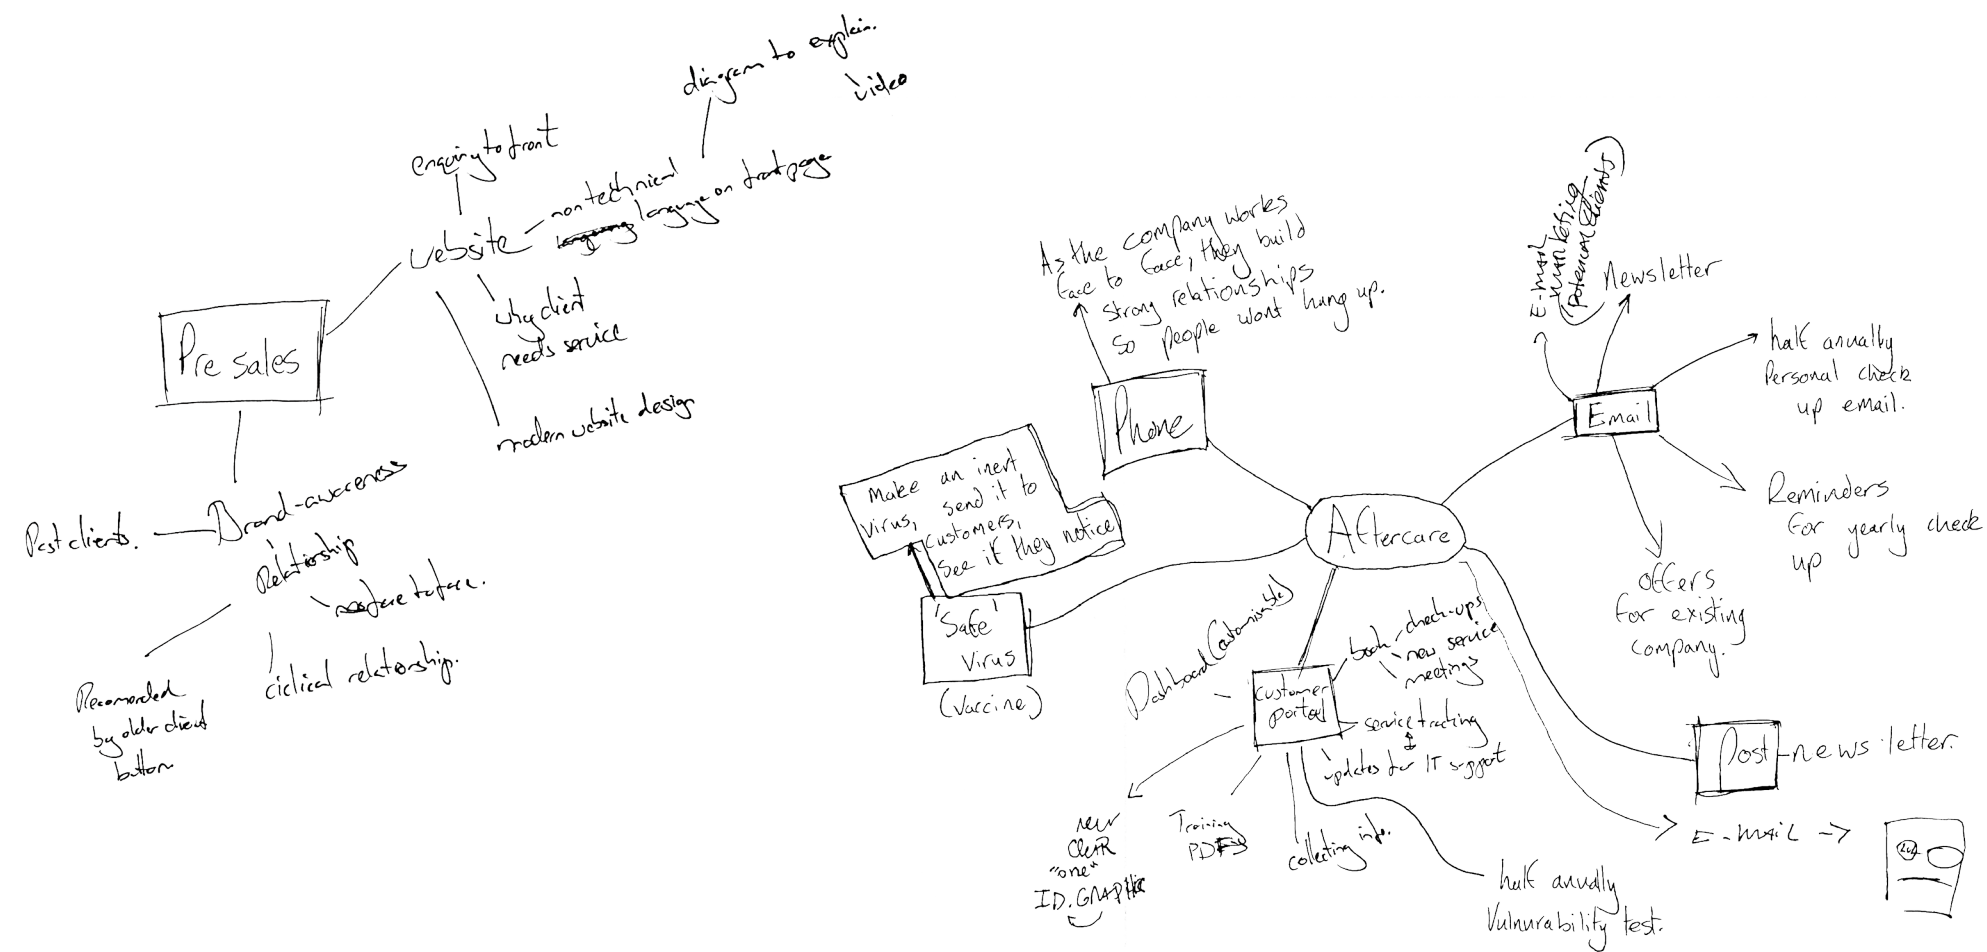 diagram to explain.
video
enquiry to front
non technical
language on front page
website
why client
needs service
modern website design
Pre sales
Brand-awareness
Past clients.
Relationship
face to face.
ciclical relationship.
Recomended
by older client
button
As the company works
face to face, they build
strong relationships
so people wont hang up.
Phone
Make an inert
virus, send it to
customers,
see if they notice
'Safe'
Virus
(Vaccine)
Aftercare
E-MAIL
MARKETING
(POTENCIAL CLIENTS)
Newsletter
half anually
Personal check
up email.
Email
Reminders
for yearly check
up
offers
for existing
company.
Dashboard (customisable)
customer
portal
book
check-ups
new service
meetings
service tracking
updates for IT support
new
CLEAR
"one"
ID.GRAPHIC
Training
PDFs
collecting info.
half anually
Vulnurability test.
Post
newsletter.
E-MAIL